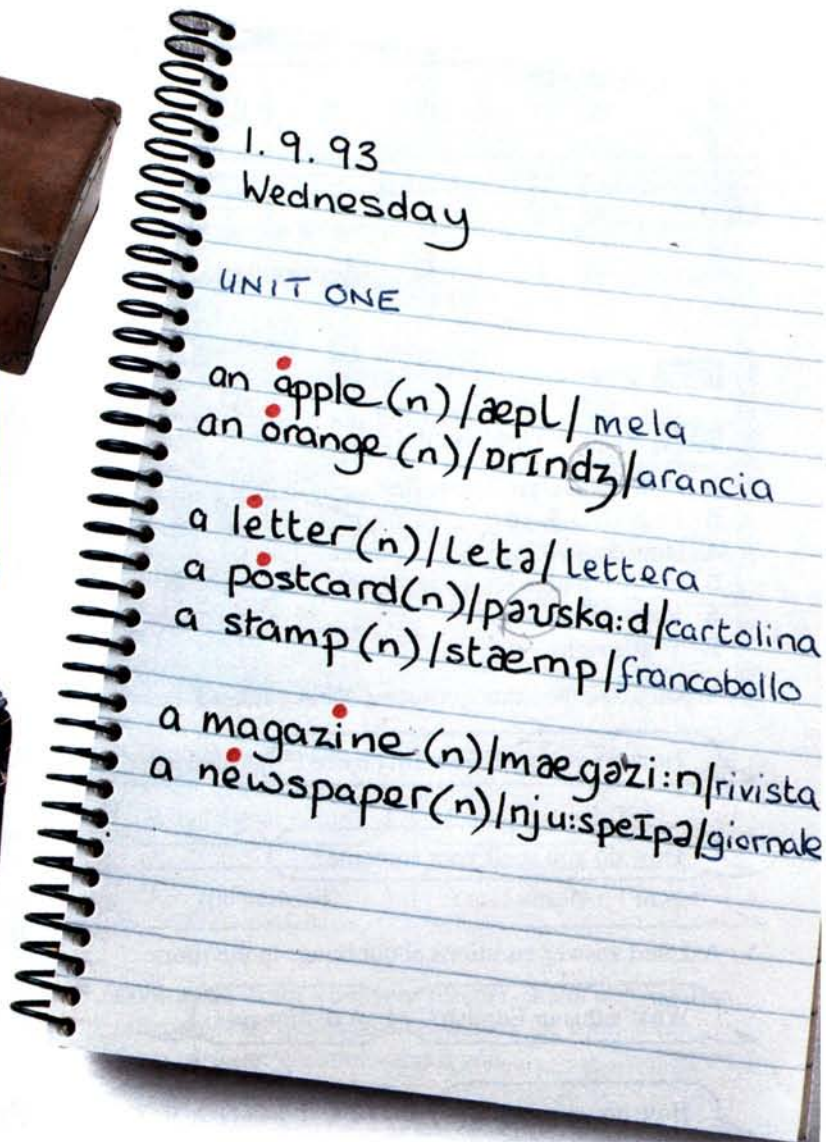 1.9.93
Wednesday
UNIT ONE
an apple (n) /æpl/ mela
an orange (n) /ɒrɪndʒ/ arancia
a letter (n) /letə/ lettera
a postcard (n) /pəʊskɑ:d/ cartolina
a stamp (n) /stæmp/ francobollo
a magazine (n) /mægəzi:n/ rivista
a newspaper (n) /nju:speɪpə/ giornale